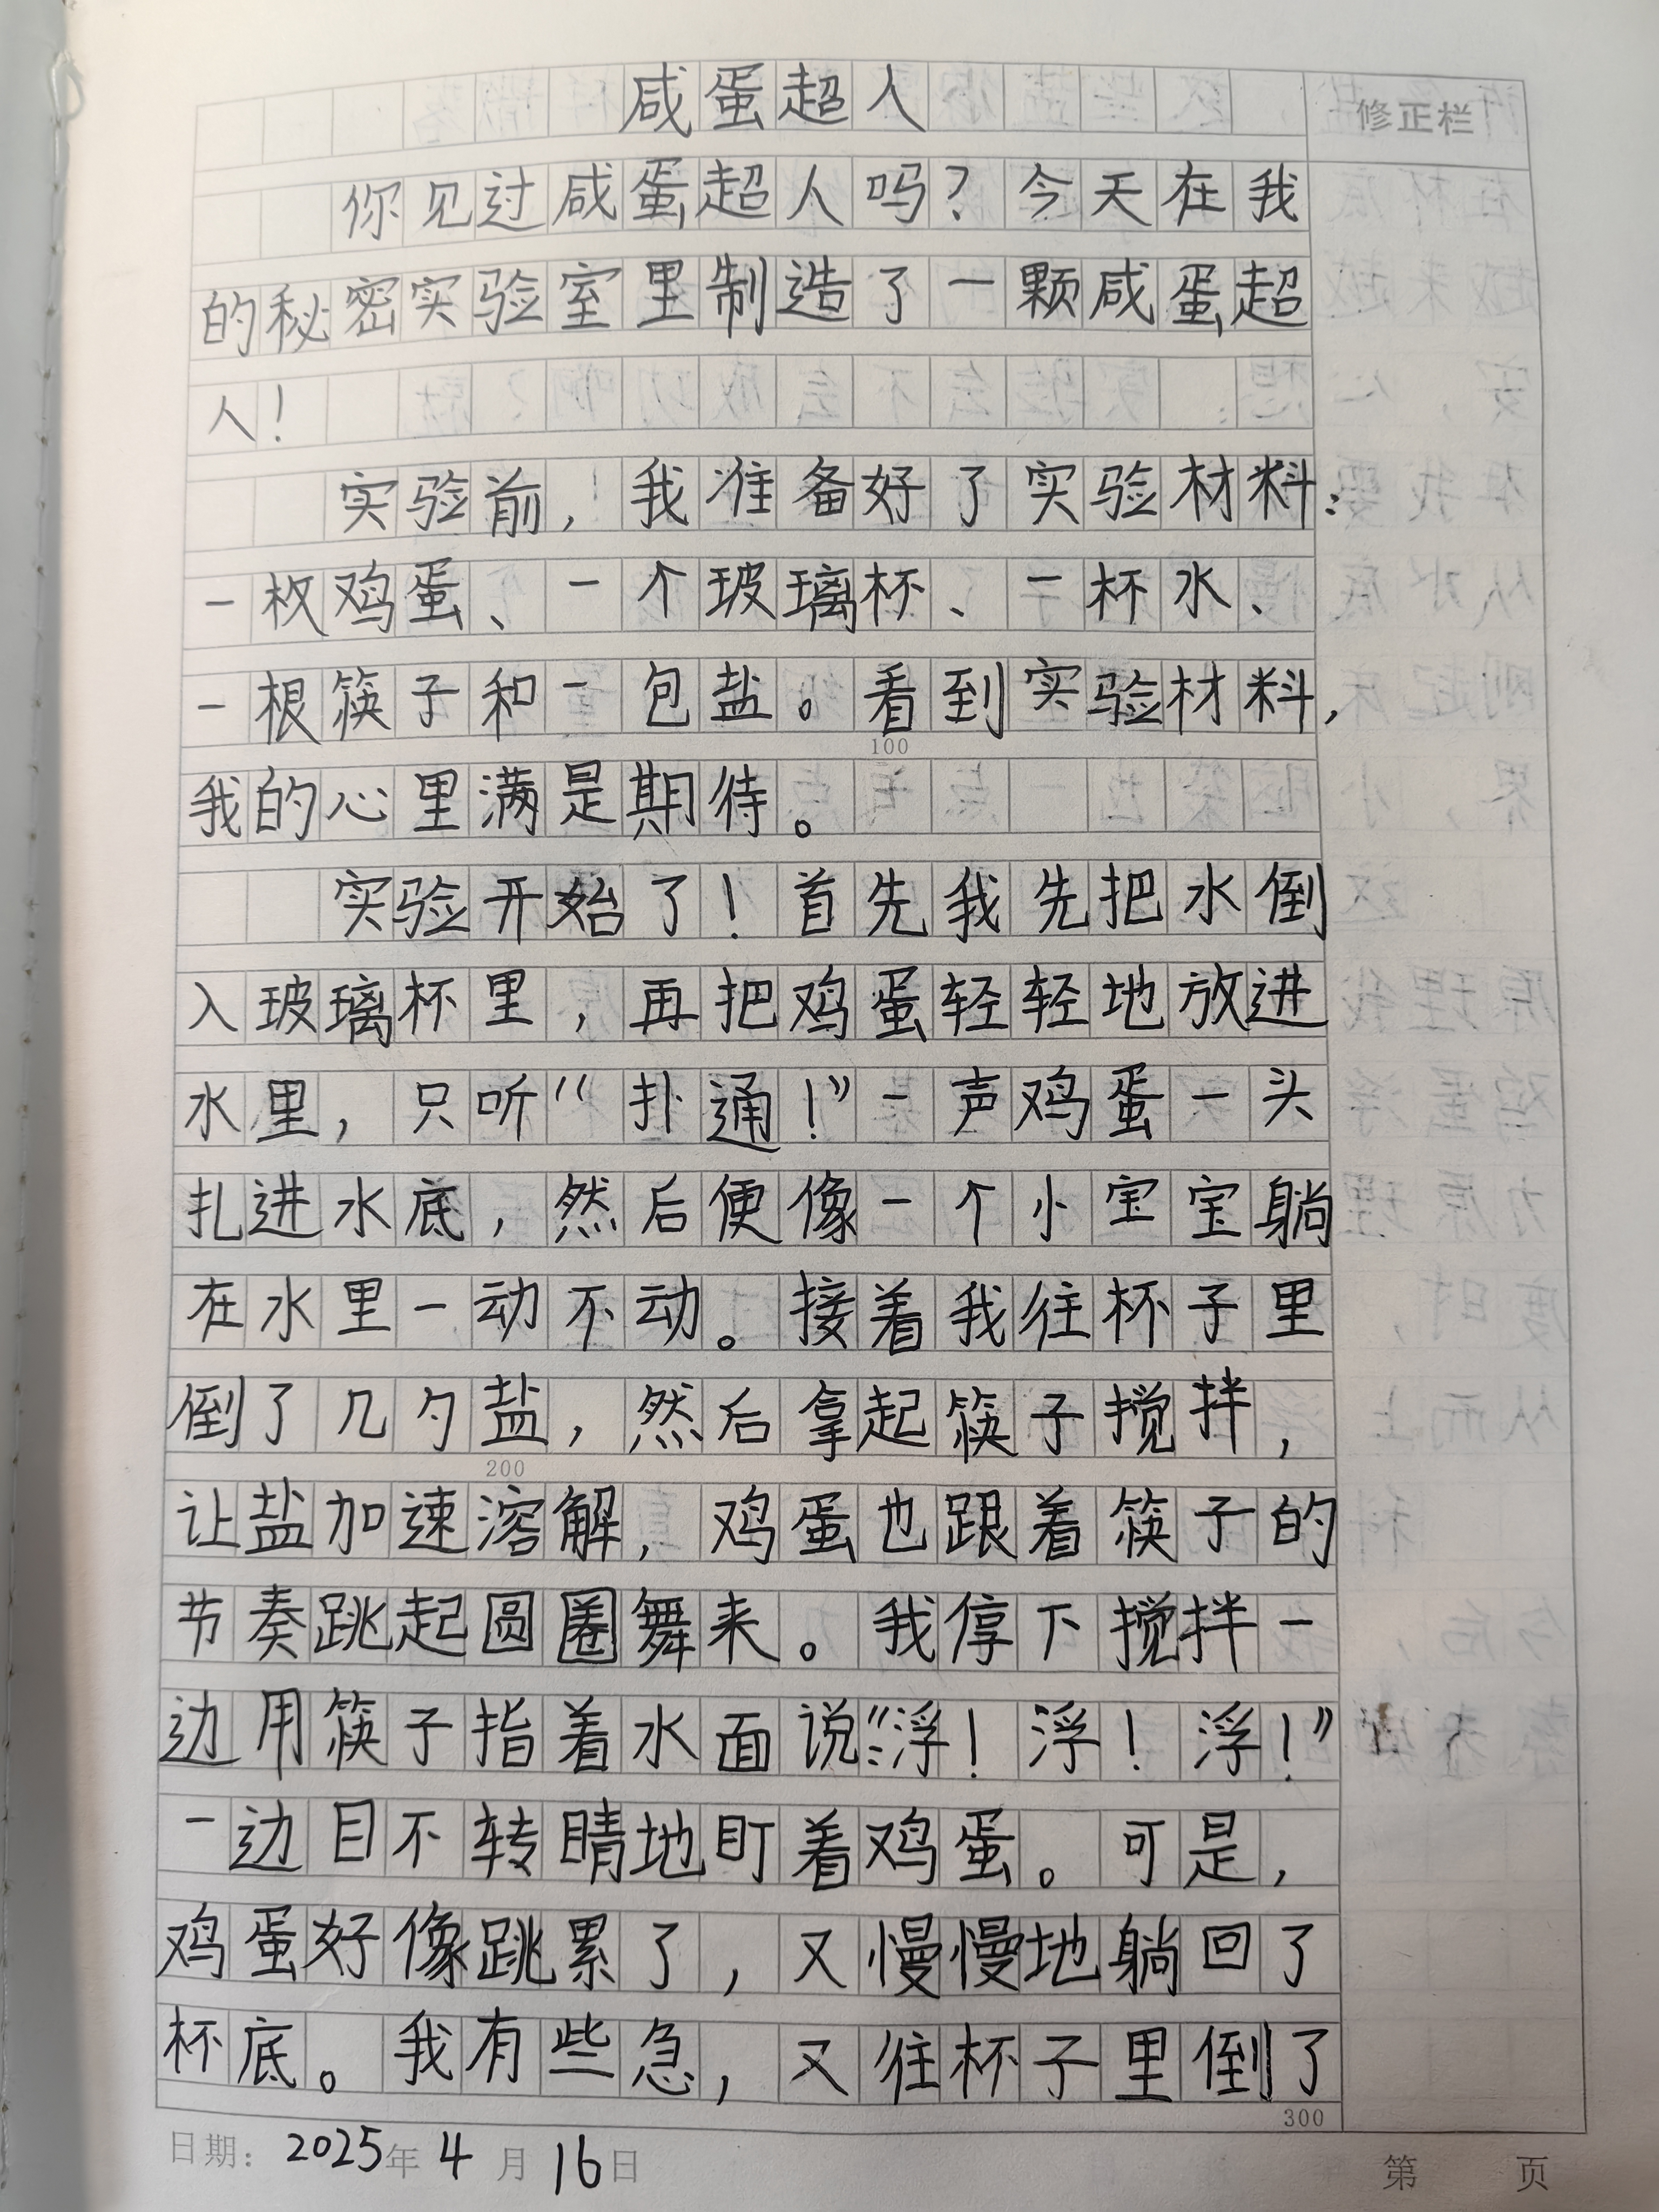 咸蛋超人
修正栏
你见过咸蛋超人吗？今天在我
的秘密实验室里制造了一颗咸蛋超
人！
实验前，我准备好了实验材料：
一枚鸡蛋、一个玻璃杯、一杯水、
一根筷子和一包盐。看到实验材料，
100
我的心里满是期待。
实验开始了！首先我先把水倒
入玻璃杯里，再把鸡蛋轻轻地放进
水里，只听“扑通！”一声鸡蛋一头
扎进水底，然后便像一个小宝宝躺
在水里一动不动。接着我往杯子里
倒了几勺盐，然后拿起筷子搅拌，
200
让盐加速溶解，鸡蛋也跟着筷子的
节奏跳起圆圈舞来。我停下搅拌一
边用筷子指着水面说：“浮！浮！浮！”
一边目不转睛地盯着鸡蛋。可是，
鸡蛋好像跳累了，又慢慢地躺回了
杯底。我有些急，又往杯子里倒了
300
日期：2025年4月16日
第 页